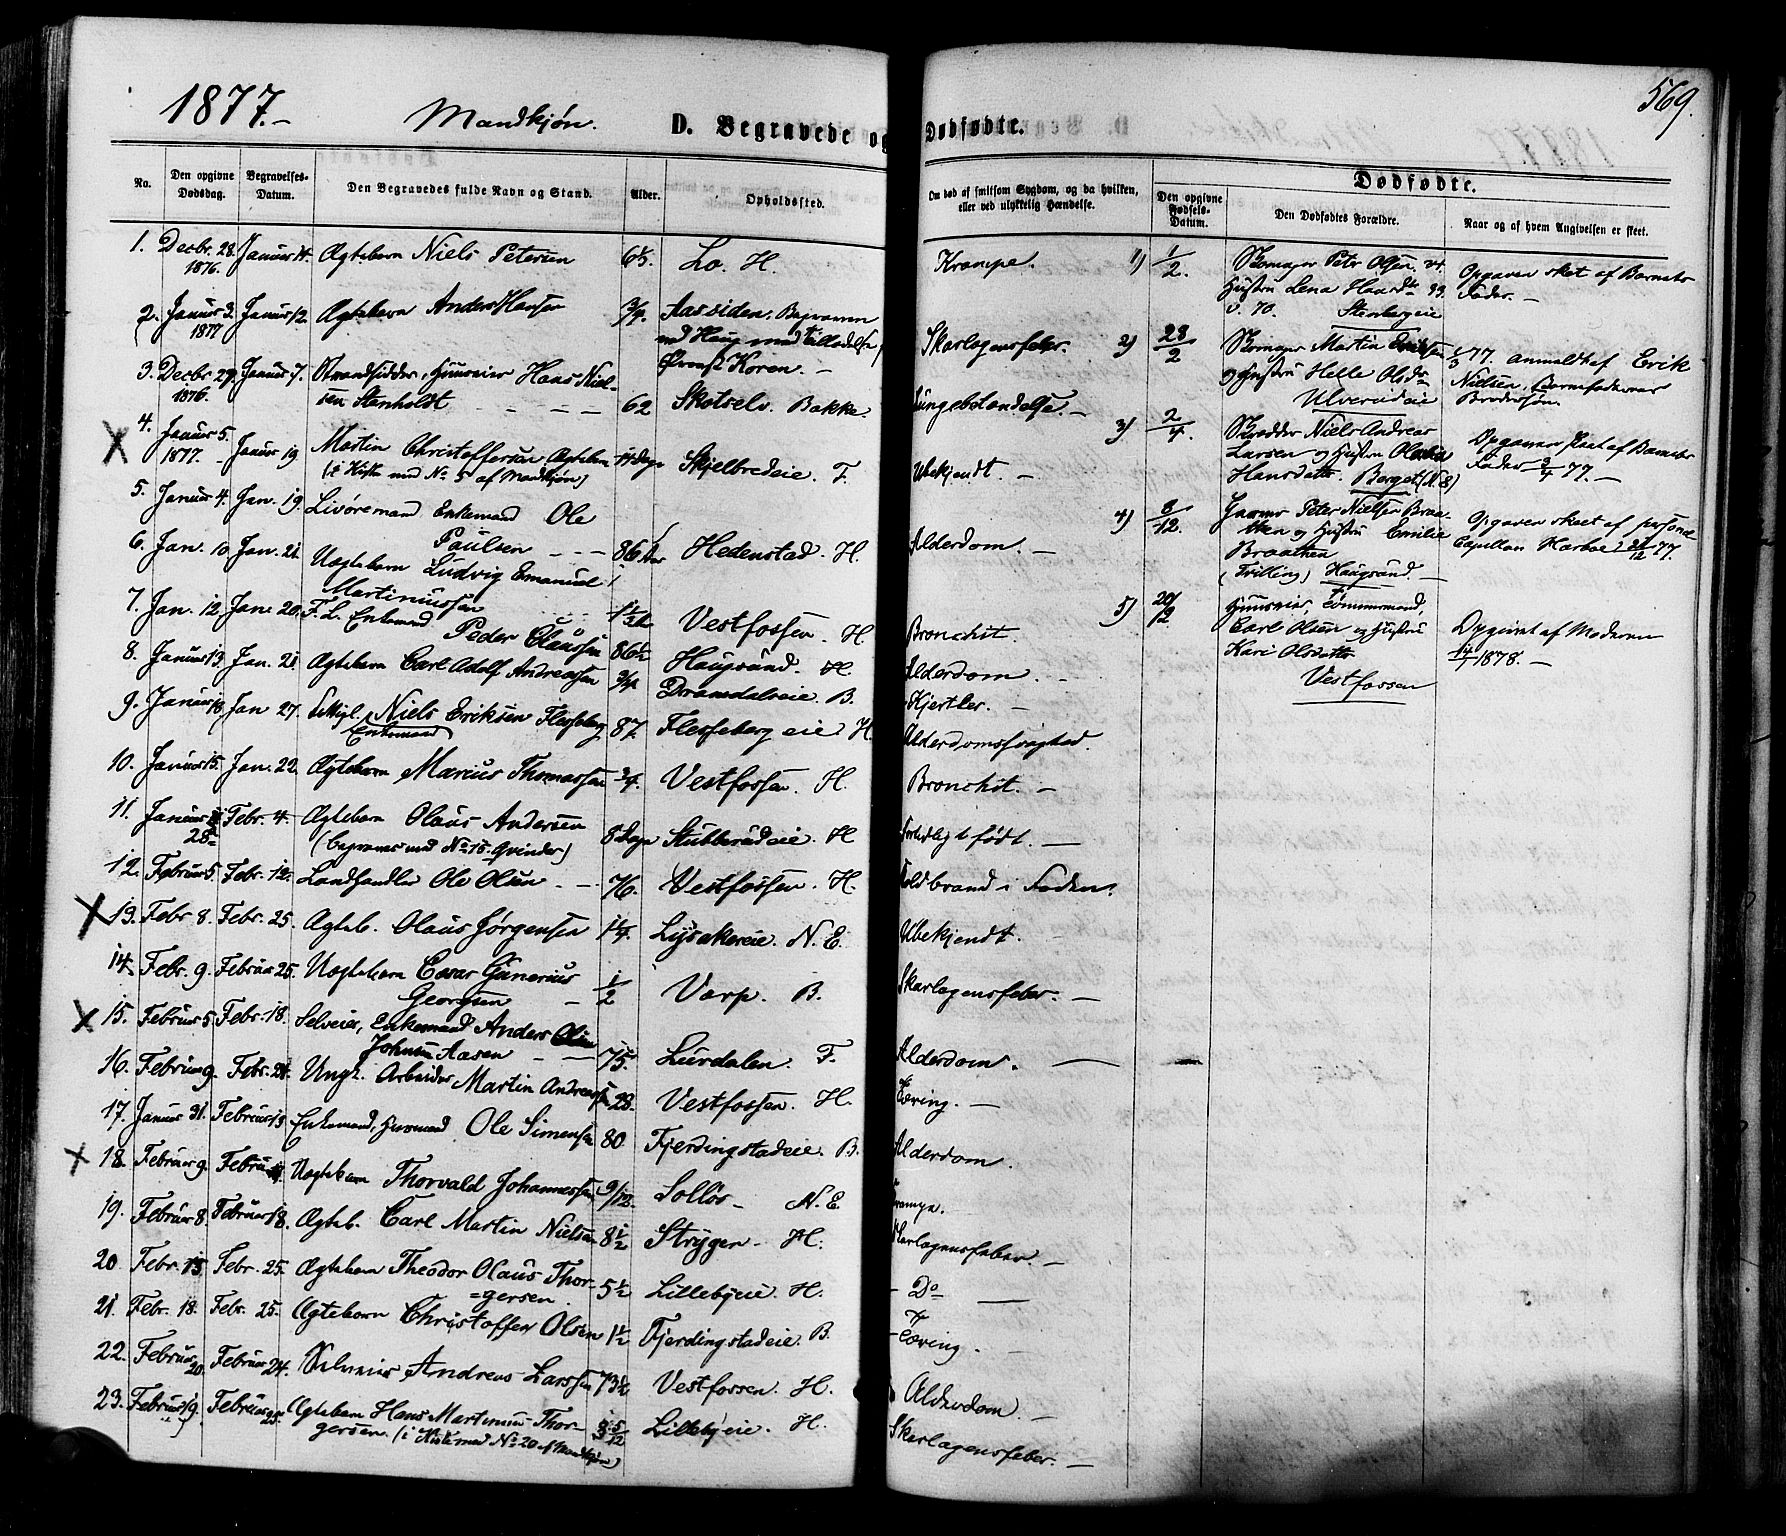 1877.-
Mandkjøn.
D. Begravede og Dødfødte.
569.
No.
Den opgivne Dødsdag.
Begravelses-Datum.
Den Begravedes fulde Navn og Stand.
Alder.
Opholdssted.
Om død af smitsom Sygdom, og da hvilken,
eller ved ulykkelig Hændelse.
Dødfødte.
Den opgivne Fødsels-Datum.
Den Dødfødtes Forældre.
Naar og af hvem Angivelsen er skeet.
1. Decbr. 28. 1876. Januar 14. Ægtebarn Niels Petersen Lo. H. Krampe.
2. Januar 3. 1877 Januar 12. Ægtebarn Anders Hansen 3/4. Aassiden. Begraven
ved Haug med Tilladelse
Provst Koren. - Skarlagensfeber.
3. Decbr. 29. 1876. Januar 7. Strandsidder, Huuseier Hans Niel-
sen Stenholdt 62 Skotselv. Bakke Lungebetændelse. -
4. Januar 5. 1877. - Januar 19 Martin Christoffersen Ægtebarn 14 Dage Skjelbredeie. F. Ubekjendt. -
(i Kiste med No 5 af Mandkjøn)
5. Januar 4. Jan. 19. Livøremand Enkemand Ole
Paulsen - - - 86 Hedenstad. H. Alderdom. -
6. Jan. 10 Jan. 21. Uægtebarn Ludvig Emanuel
Martinussen Vestfossen. H. Bronchit.
7. Jan. 12. Jan. 20. F. L. Enkemand
Peder Olaussen 86 1/2 Haugsund. H. Alderdom. -
8. Januar 13. Jan. 21 Ægtebarn Carl Adolf Andreassen 3/4 Dramdalseie B. Hjertler. -
9. Januar 18. Jan 27. Niels Eriksen Flesseberg 87. Flesseberg eie H. Alderdomssvaghed.
Enkemand
10. Januar 15. Jan. 22. Ægtebarn Marius Thomassen 3/4. Vestfossen. H. Bronchit. -
11. Januar 28 Febr. 4. Ægtebarn Olaus Andersen 8 Dage Stubberudeie. H født. -
(begraves med No 15 Qvinder)
12. Februar 5. Febr. 12. Landhandler Ole Olsen - - 76. Vestfossen. H. Koldbrand i Foden.
13. Febr 8. Febr. 25. Ægteb. Olaus Jørgensen 1 1/4. Lysakereie. N. E. Ubekjendt. -
14. Febr. 9. Februar 25. Uægtebarn Gunerius
Georgsen - 1/2 Vorp. B. Skarlagensfeber. -
15. Februar 5. Febr. 18. Selveier, Enkemand Anders
Johnsen Aasen - - 75. Lurdalen. F. Alderdom.
16. Februar 9. Febr. 24. Ungk. Arbeider Martin Andreassen 28. Vestfossen. H. Tæring. -
17. Januar 31. Februar 19. Enkemand, Huusmand Ole Simensen 80 Fjerdingstadeie. B. Alderdom.
18. Februar 9. Februar Uægtebarn Thorvald Johannessen 9/12. Solløs - N. E. Krampe.
19. Februar 8. Februar 18. Ægteb. Carl Martin Nielsen 8 1/2 Strygen - H. Skarlagensfeber. -
20 Febr. 15 Febr. 25. Ægtebarn Theodor Olaus Thor-
=gersen. 5 1/2 Lillebyeie. H. - Do -
21. Febr. 18. Febr. 25. Ægtebarn Christoffer Olsen 1 1/2 Fjerdingstadeie. B. Tæring. -
22. Februar 20. Februar 24. Andreas Larssen 73 1/2 Vestfossen. H. Alderdom. -
23. Februar 19. Februar 25 Ægtebarn Hans Martinius Thor-
gersen. (i Kiste med No 20 af Mandkjøn) 3 5/12 Lillebyeie. H. Skarlagensfeber. -
1) 1/2. Skomager Peter Olsen,
Hustru Lena
v. 70. Stenbergeie
Opgaven skeet af Barnets
Fader. -
2) 28/2 Skomager Martin Eriksen
og Hustru Helle Olsdr
Ulverudeie
1/3 77. anmeldt af Erik
Nielsen, Barnefaderens
Brodersøn.
3) 2/4. Skrædder Niels Andreas
Larsen og Hustru
Hansdatter. Berget (N. E)
Opgaven skeet af Barnets
Fader 2/4 77. -
4) 8/12. Peter Nielsen Braa-
then og Hustru Emilie
Braathen
(Trilling) Haugsund. -
Opgaven skeet af personel
Capellan Harboe 77.
5) 20/12. Huuseier, Tømmermand,
Carl Olsen og Hustru
Kari Olsdatter
Vestfossen
Opgivet af Moderen
1878. -